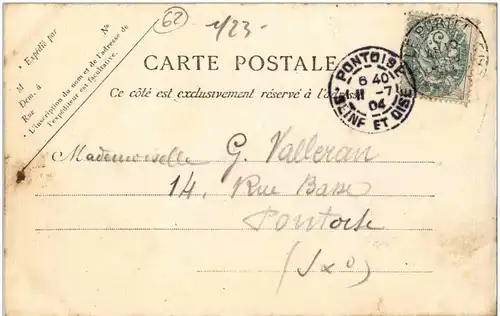 62
1/23-
Nº
Expédié par
M
Dem. à
Rue
L'inscription du nom et de l'adresse de
l'expéditeur est facultative.
CARTE POSTALE
Ce côté est exclusivement réservé à l'adresse
PONTOISE
6 40
11 -7
04
SEINE ET OISE
Mademoiselle G. Valleran
14, Rue Basse
Pontoise
(S x O)